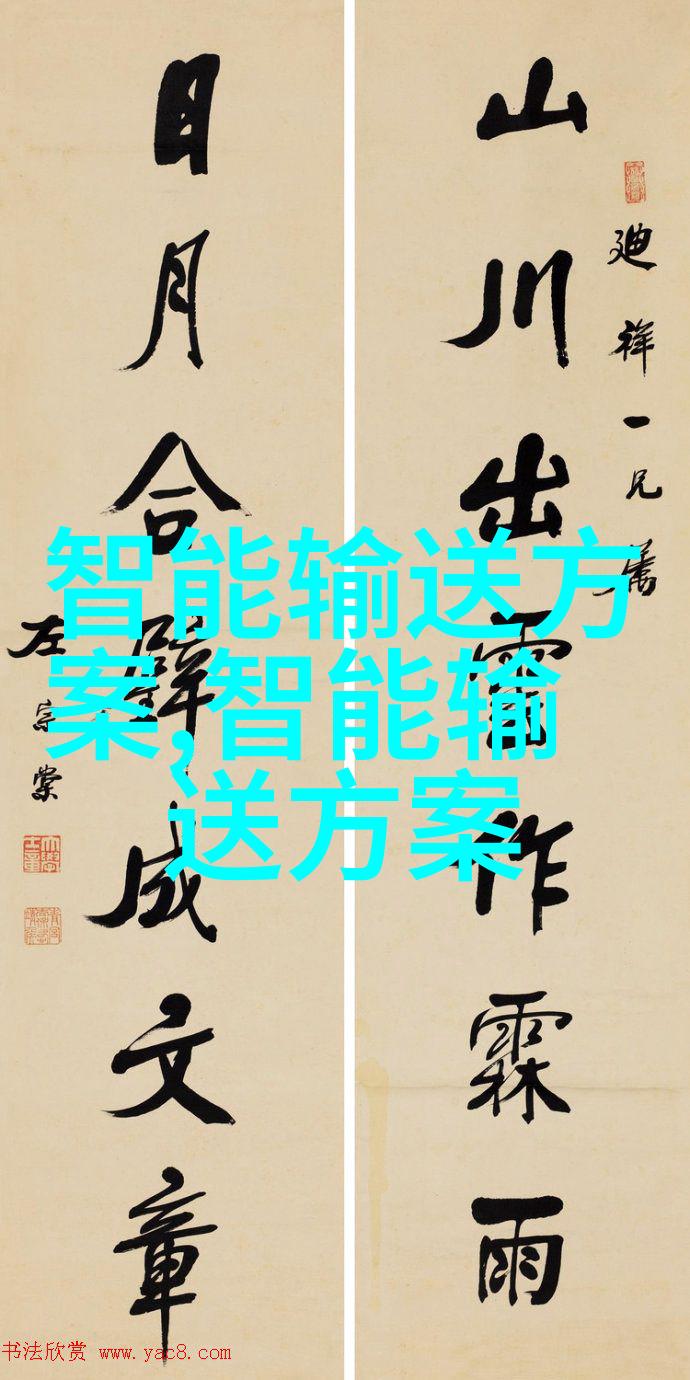 廸祥一兄屬
山川出雲作霖雨
日月合璧成文章
左宗棠
智能输送方
案,智能输
送方案
书法欣赏 www.yac8.com